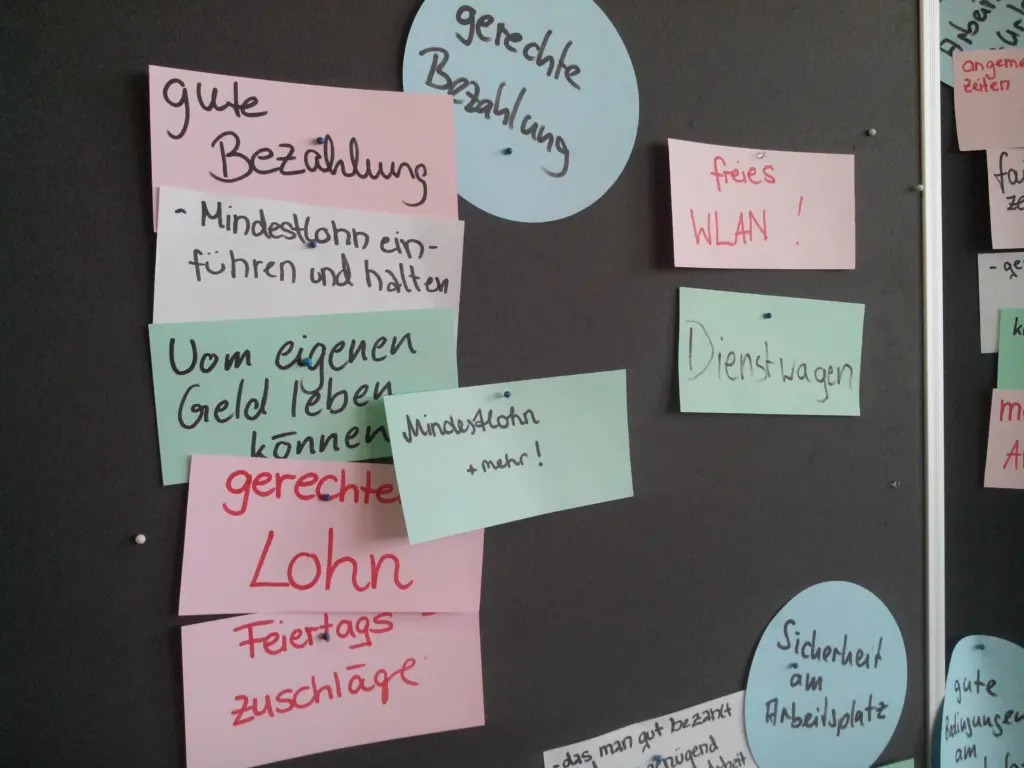 gerechte
Bezahlung
gute
Bezahlung
- Mindestlohn ein-
führen und halten
Vom eigenen
Geld leben
können
Mindestlohn
+ mehr!
gerechte
Lohn
Feiertags-
zuschläge
freies
WLAN !
Dienstwagen
Sicherheit
am
Arbeitsplatz
- das man gut bezahlt
zeiten
- ge
gute
Bedingungen
am